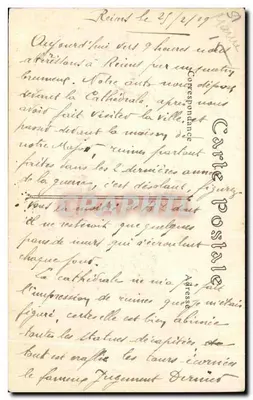 Reims le 25/2/19
Aujourd'hui vers 9 heures nous
arrivions à Reims par un matin
brumeux. Notre auto nous dépose
devant la Cathédrale, après nous
avoir fait visiter la ville, et
passé devant la maison de
notre Major, ruines partout
faites dans les 2 dernières années
de la guerre, c'est désolant, figurez
vous
il ne resterait que quelques
pans de murs qui s'écroulent
chaque jour.
La cathédrale ne m'a pas fait
l'impression de ruines que je m'étais
figuré, certes elle est bien abîmée
toutes les statues décapitées
tout est les tours écornées
le fameux Jugement Dernier
Carte postale
Correspondance
Adresse
CPAPHIL